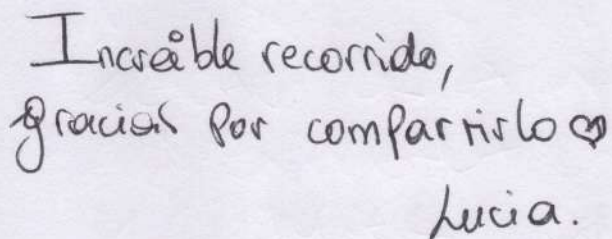 Increíble recorrido,
gracias por compartirlo ♡
Lucia.